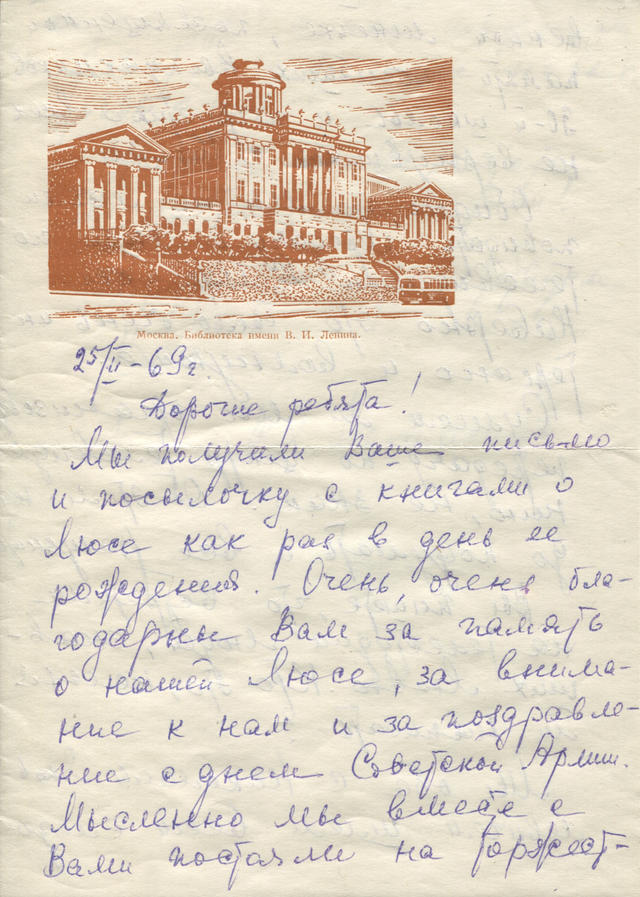 Москва. Библиотека имени В. И. Ленина.
25/II-69 г.
Дорогие ребята!
Мы получили Ваше письмо
и посылочку с книгами о
Люсе как раз в день ее
рождения. Очень, очень бла-
годарны Вам за память
о нашей Люсе, за внима-
ние к нам и за поздравле-
ние с днем Советской Армии.
Мысленно мы вместе с
Вами постояли на торжест-